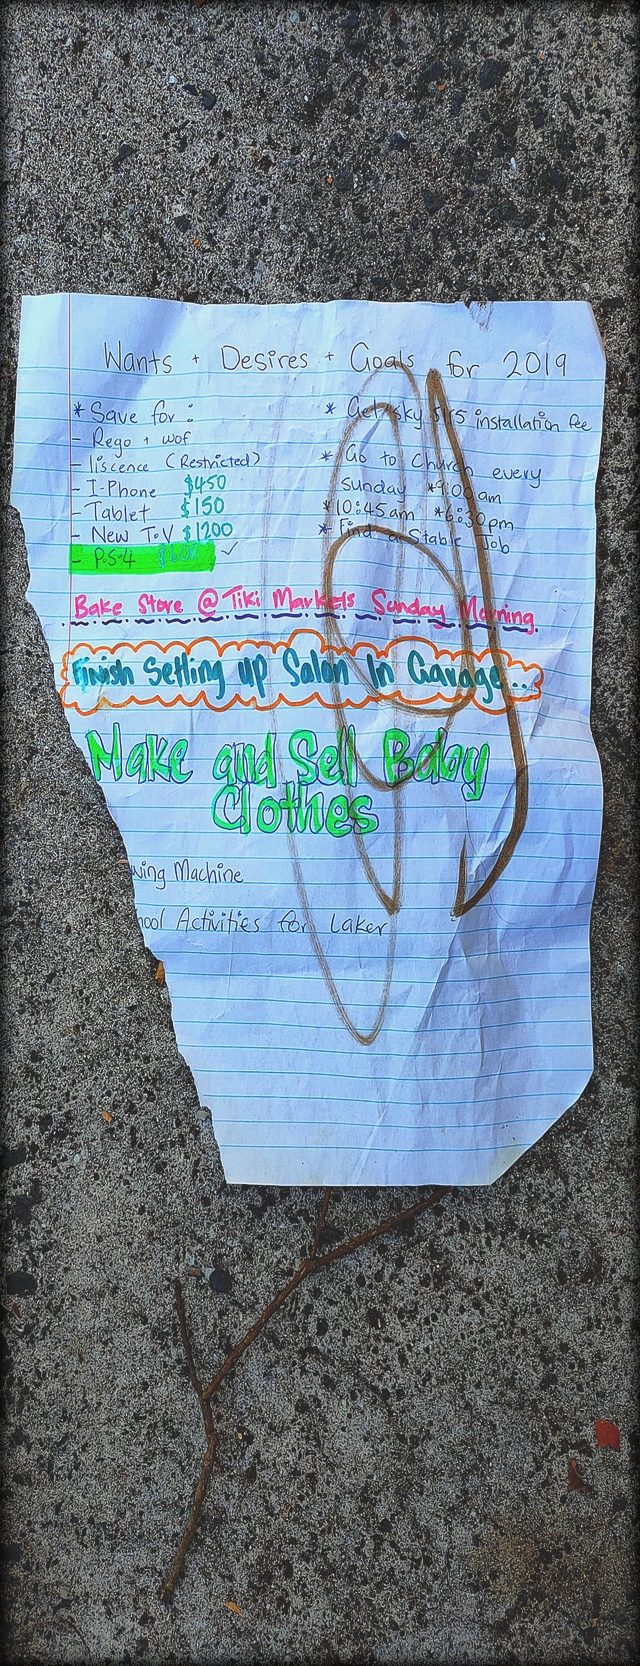 Wants + Desires + Goals for 2019
* Save for :
- Rego + wof
- liscence (Restricted)
- I-Phone $450
- Tablet $150
- New T.V $1200
- P.S.4
* Get sky installation fee
* Go to Church every
Sunday *9:00am
*10:45am *6:30pm
* Find a Stable Job
Bake Store @ Tiki Markets Sunday Morning.
Finish Setting up Salon In Garage...
Make and Sell Baby
Clothes
wing Machine
hool Activities for Laker